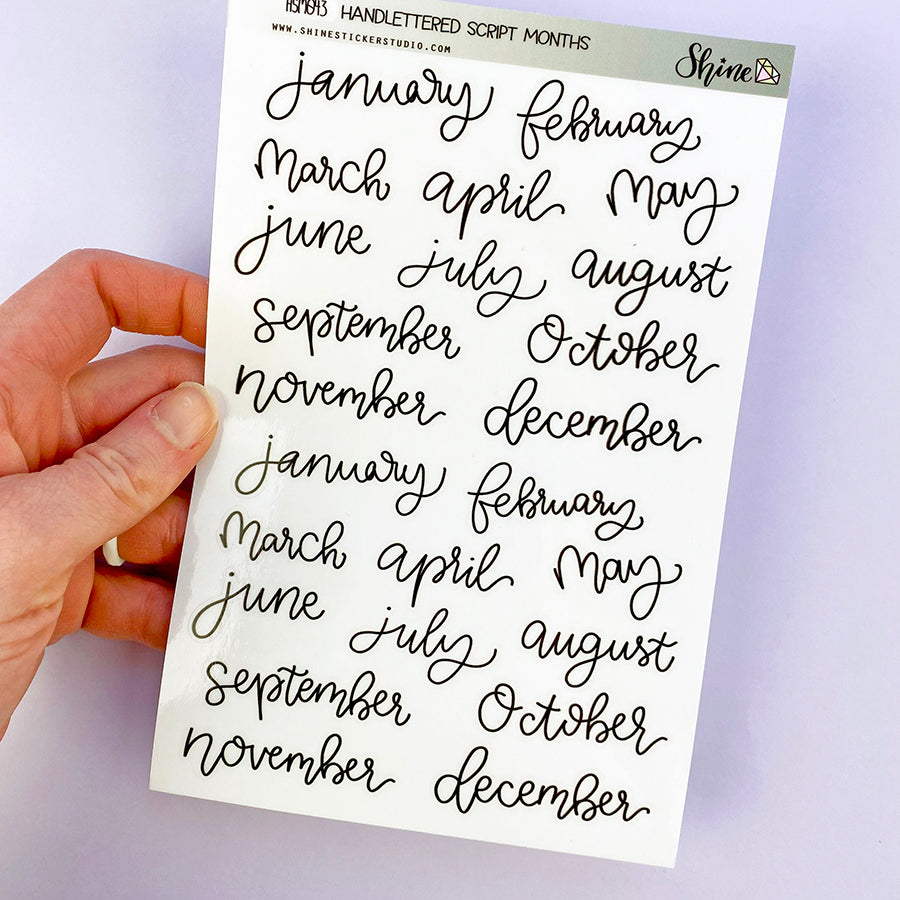 HSM643 HANDLETTERED SCRIPT MONTHS
www.shinestickerstudio.com
Shine
january february
march april may
june july august
september october
november december
january february
march april may
june july august
september october
november december